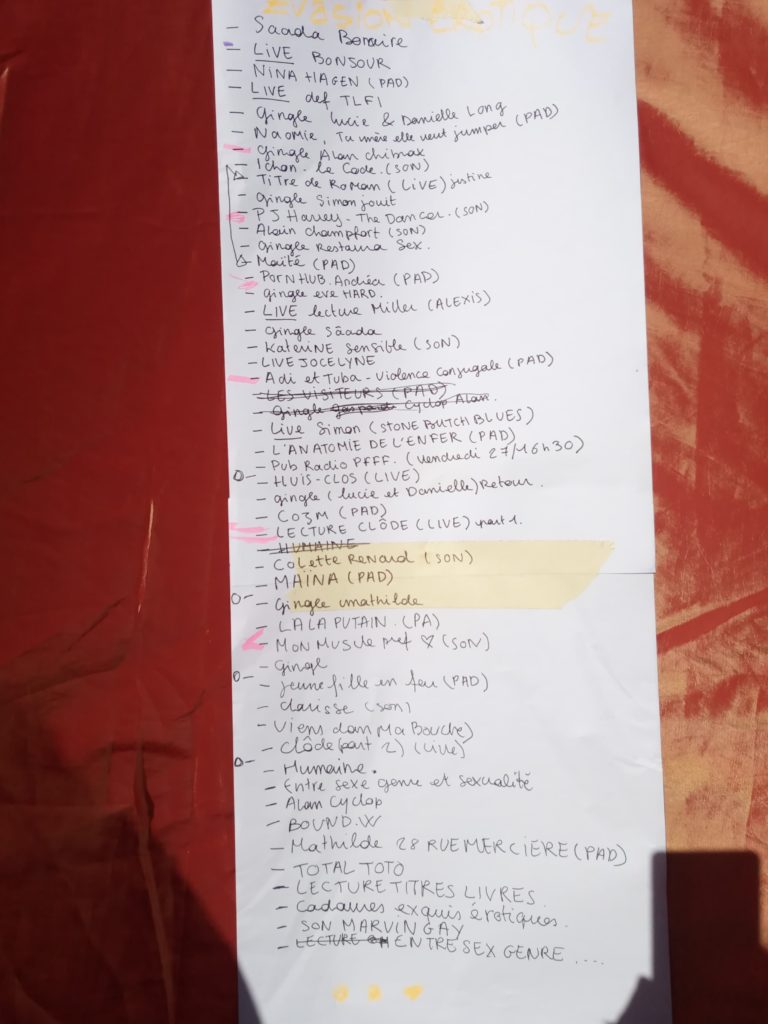 EVASION EROTIQUE
- Saada Bonaire
- LIVE BONSOUR
- NINA HAGEN (PAD)
- LIVE def TLFI
- Gingle Lucie & Danielle Long
- Naomie, Tu mère elle veut jumper (PAD)
- Gingle Alan chimax
- Ichon - le Code. (SON)
- TITRE de ROMAN (LIVE) justine
- Gingle Simon jouit
- PJ Harvey - The Dancer. (SON)
- Alain champfort (SON)
- Gingle Restama Sex.
- Maïté (PAD)
- PORNHUB. Andréa (PAD)
- Gingle eve HARD.
- LIVE lecture Miller (ALEXIS)
- Gingle Sâada
- KateriNE Sensible (SON)
- LIVE JOCELYNE
- Adi et Tuba - Violence conjugale (PAD)
- LES VISITEURS (PAD)
- Gingle Cyclop Alan.
- Live Simon (STONE BUTCH BLUES)
- L'ANATOMIE DE L'ENFER (PAD)
- Pub Radio PFFF. (vendredi 27/16h30)
- HUIS-CLOS (LIVE)
- gingle (lucie et Danielle) Retour.
- COZM (PAD)
- LECTURE CLÔDE (LIVE) part 1.
- HUMAINE
- Colette Renard (SON)
- MAÏNA (PAD)
- Gingle mathilde
- LALA PUTAIN. (PA)
- MON MUSCLE pref ♡ (SON)
- Gingl
- jeune fille en feu (PAD)
- Clarisse (son)
- Viens dans Ma Bouche)
- Clôde (part 2) (Live)
- Humaine.
- Entre sexe genre et sexualité
- Alan Cyclop
- BOUND.W
- Mathilde 28 RUE MERCIERE (PAD)
- TOTAL TOTO
- LECTURE TITRES LIVRES.
- Cadavres exquis érotiques.
- SON MARVIN GAY
- LECTURE ENTRE SEX GENRE ....